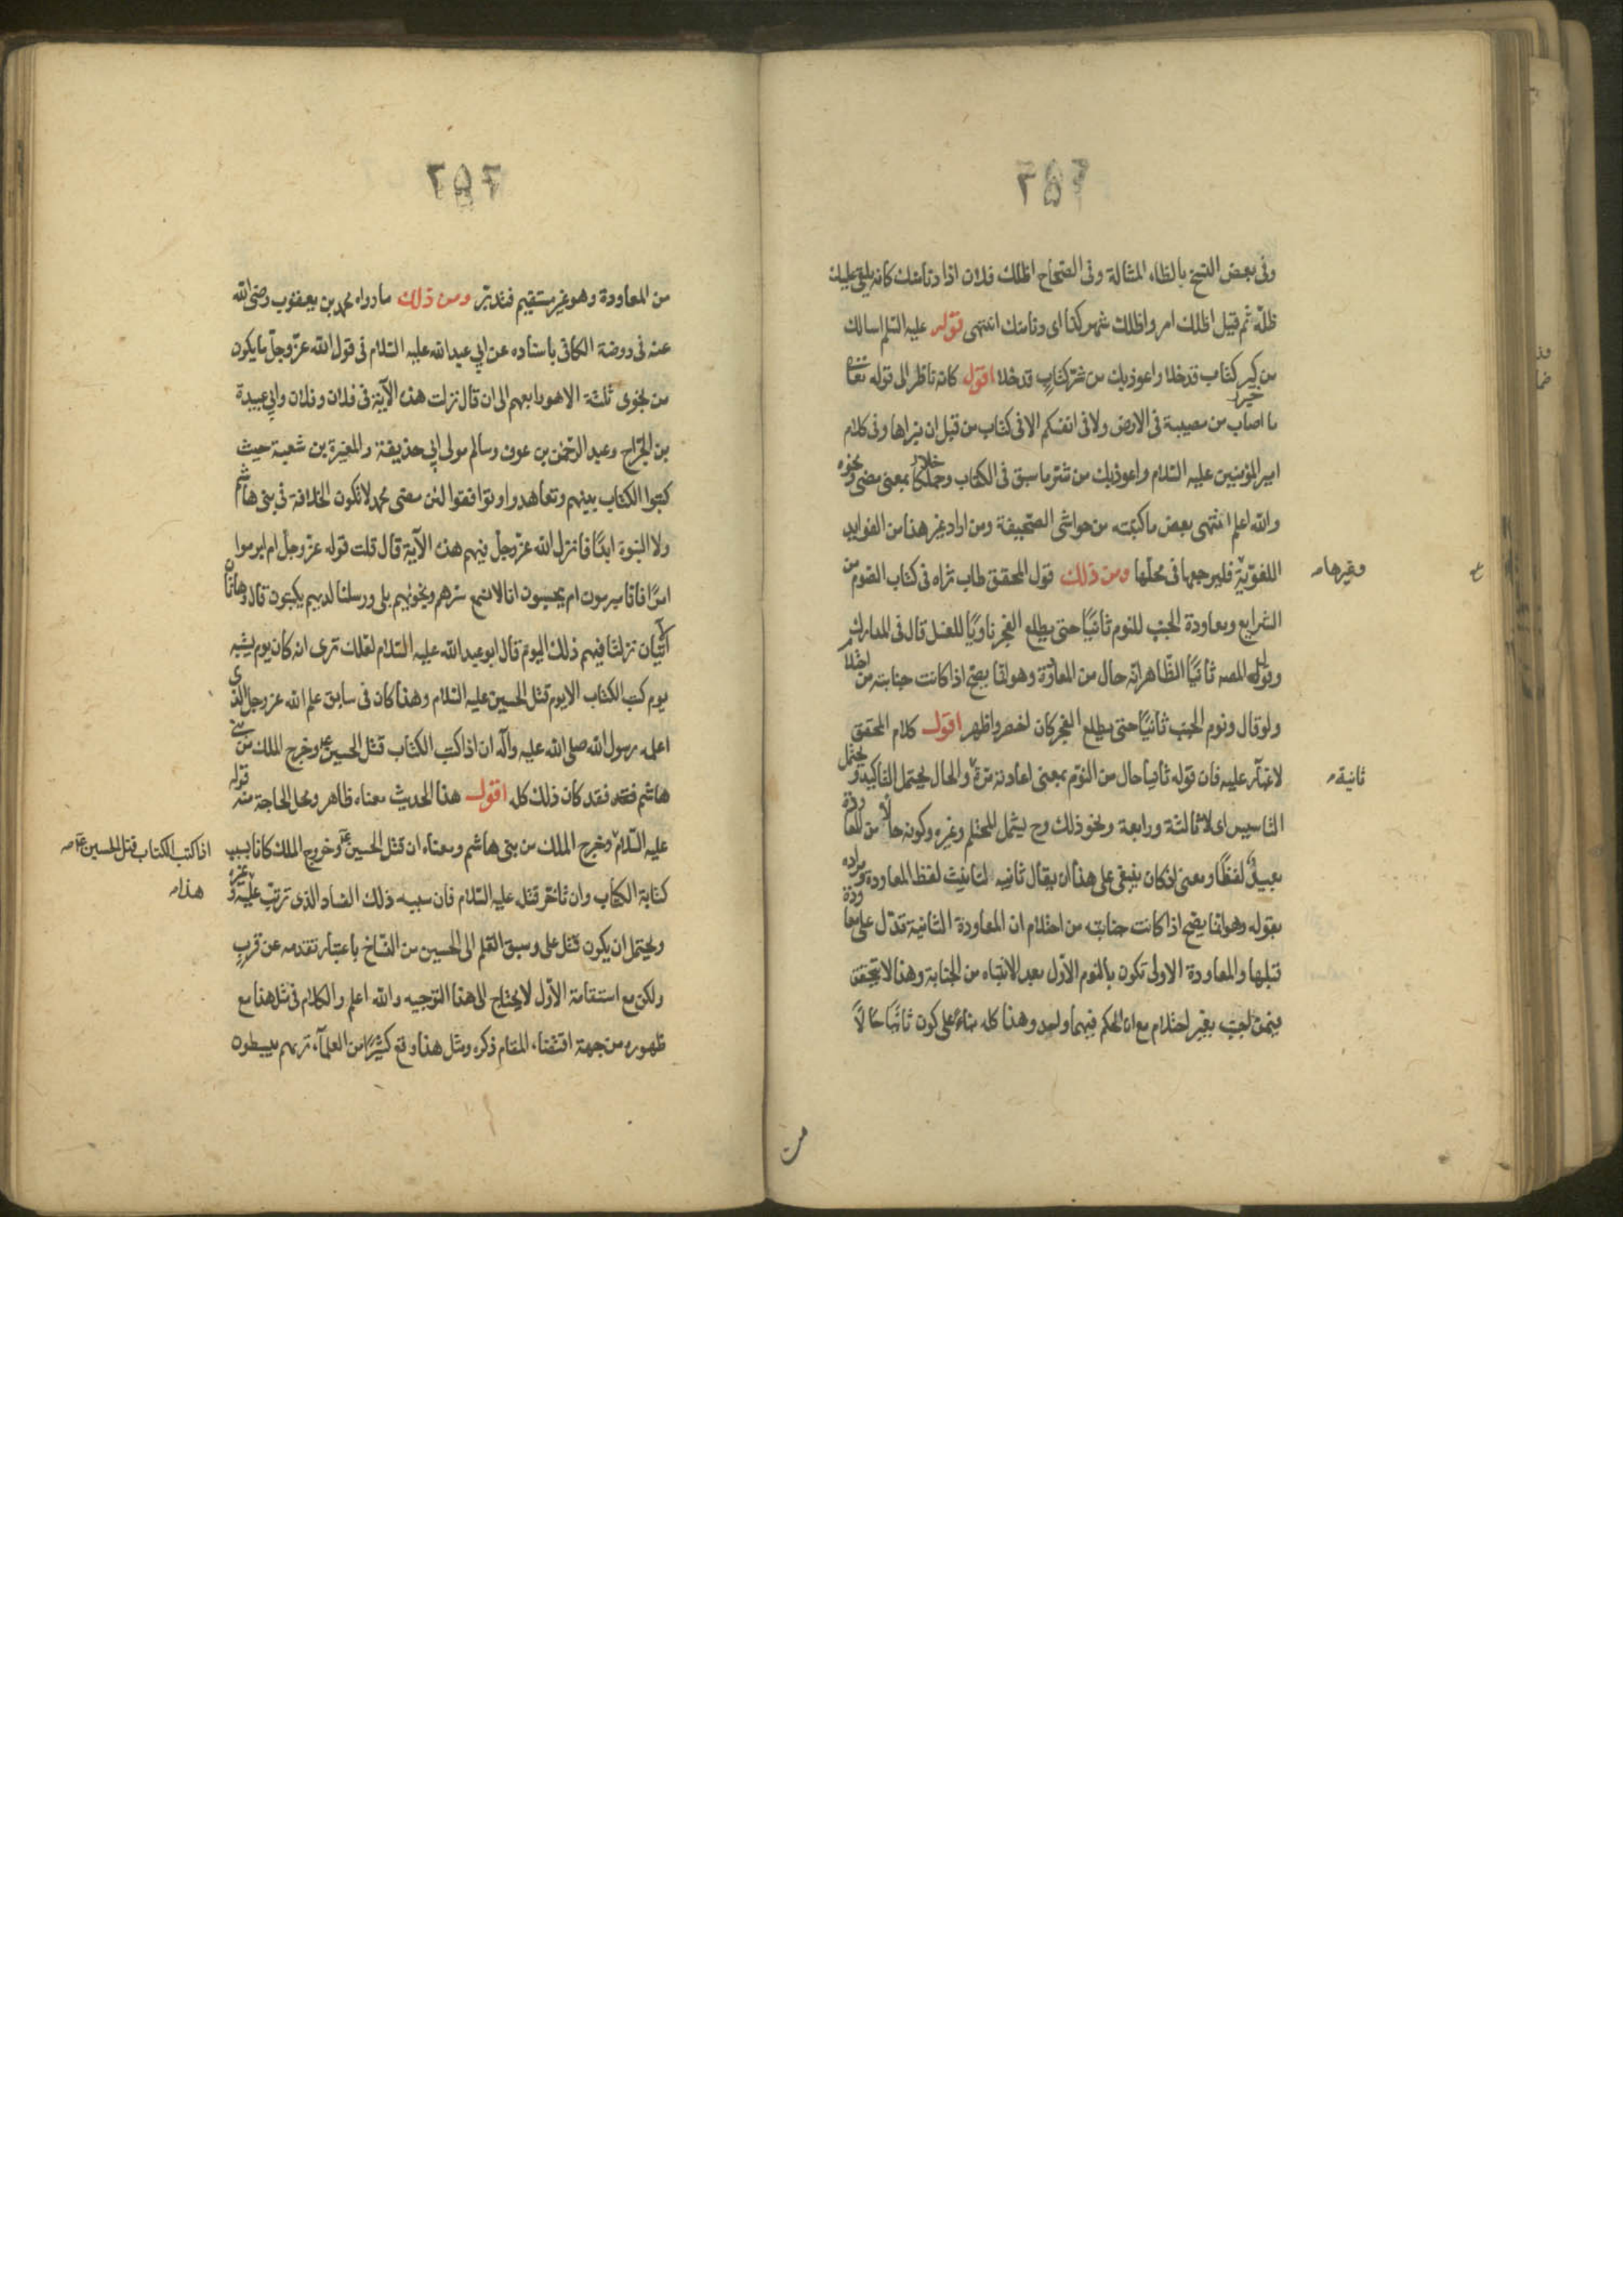 ٢٥٢
وفى بعض النسخ بالظاء المشالة وفى الصحاح اظلك فلان اذا دنا منك كانه يلقى عليك
ظله ثم قيل اظلك امر واظلك شهر كذا اى دنا منك انتهى قوله عليه السلم اسالك
من خير كتاب قد خلا واعوذ بك من شر كتاب قد خلا اقول كانه ناظر الى قوله تعالى
ما اصاب من مصيبة فى الارض ولا فى انفسكم الا فى كتاب من قبل ان نبراها وفى كلام
امير المؤمنين عليه السلام واعوذ بك من شر ما سبق فى الكتاب وخلا بمعنى مضى ونحوه
والله اعلم انتهى بعض ما كتبته من حواشى الصحيفة ومن اراد غير هذا من الفوايد
اللغوية فليرجعها فى محلها ومن ذلك قول المحقق طاب ثراه فى كتاب الصوم من
وغيرها صه
الشرايع ومعاودة الجنب للنوم ثانيًا حتى يطلع الفجر ناويًا للغسل قال فى المدارك
وقول المصه ثانيًا الظاهر انه حال من المعاودة وهو انما يصح اذا كانت جنابته من احتلام
ولو قال ونوم الجنب ثانيًا حتى يطلع الفجر كان اخصر واظهر اقول كلام المحقق
لا غبار عليه فان قوله ثانيا حال من النوم بمعنى اعادته مرة والحال يحتمل التاكيد ويحتمل
ثانية صه
التاسيس اى لا ثالثة ورابعة ونحو ذلك وح يشمل المحتلم وغيره وكونه حالًا من المعاودة
بعيد لفظًا ومعنى اذ كان ينبغى على هذا ان يقال ثانيه لتانيث لفظ المعاودة ومراده
بقوله وهو انما يصح اذا كانت جنابته من احتلام ان المعاودة الثانية تدل على معاودة
قبلها والمعاودة الاولى تكون بالنوم الاول بعد الانتباه من الجنابة وهذا لا يتحقق
فيمن اجنب بغير احتلام مع ان الحكم فيهما واحد وهذا كله بناء على كون ثانيًا حالًا
من
٢٥٢
من المعاودة وهو غير مستقيم فتدبر ومن ذلك ما رواه محمد بن يعقوب رضى الله
عنه فى روضة الكافى باسناده عن ابي عبد الله عليه السلام فى قول الله عز وجل ما يكون
من نجوى ثلثة الا هو رابعهم الى ان قال نزلت هذه الآية فى فلان وفلان وابي عبيدة
بن الجراح وعبد الرحمن بن عوف وسالم مولى ابي حذيفة والمغيرة بن شعبة حيث
كتبوا الكتاب بينهم وتعاهدوا وتوافقوا لئن مضى محمد لا تكون الخلافة فى بنى هاشم
ولا النبوة ابدًا فانزل الله عز وجل فيهم هذه الآية قال قلت قوله عز وجل ام ابرموا
امرًا فانا مبرمون ام يحسبون انا لا نسمع سرهم ونجويهم بلى ورسلنا لديهم يكتبون قال وهاتان
الآيتان نزلتا فيهم ذلك اليوم قال ابو عبد الله عليه السلام لعلك ترى انه كان يوم يشبه
يوم كتب الكتاب الا يوم قتل الحسين عليه السلام وهذا كان فى سابق علم الله عز وجل الذى
اعلمه رسول الله صلى الله عليه وآله ان اذا كتب الكتاب قتل الحسين ع وخرج الملك من بنى
هاشم فقد كان ذلك كله اقول هذا الحديث معناه ظاهر ومحل الحاجة منه قوله
عليه السلام وخرج الملك من بنى هاشم ومعناه ان قتل الحسين ع وخروج الملك كانا بسبب
اذا كتب الكتاب قتل الحسين ع صه
كتابة الكتاب وان تاخر قتله عليه السلام فان سببه ذلك الفساد الذى ترتب عليه وغيره
هذا صه
ويحتمل ان يكون قتل على وسبق القلم الى الحسين من النساخ باعتبار تقدمه عن قريب
ولكن مع استقامة الاول لا يحتاج الى هذا التوجيه والله اعلم والكلام فى مثل هذا مع
ظهوره من جهة اقتضاء المقام ذكره ومثل هذا وقع كثيرًا من العلماء تريهم يبسطون